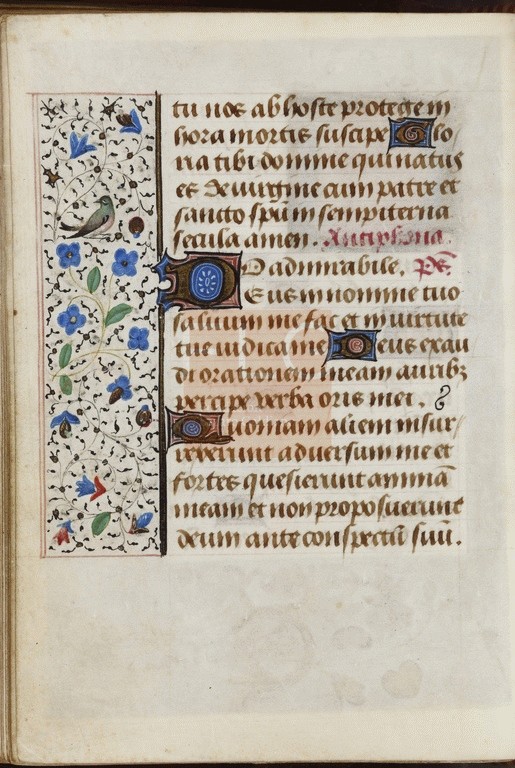 tu nos ab hoste protege in
hora mortis suscipe Glo
ria tibi domine qui natus
es de virgine cum patre et
sancto spũ in sempiterna
secula amen. Antiphona.
O admirabile. p̃s.
Deus in nomine tuo
saluum me fac et in uirtute
tue iudica me Deus exau
di orationem meam auribꝫ
percipe verba oris mei.
Quoniam alieni insur-
rexerunt aduersum me et
fortes quesierunt animã
meam et non proposuerunt
deum ante conspectũ suũ.